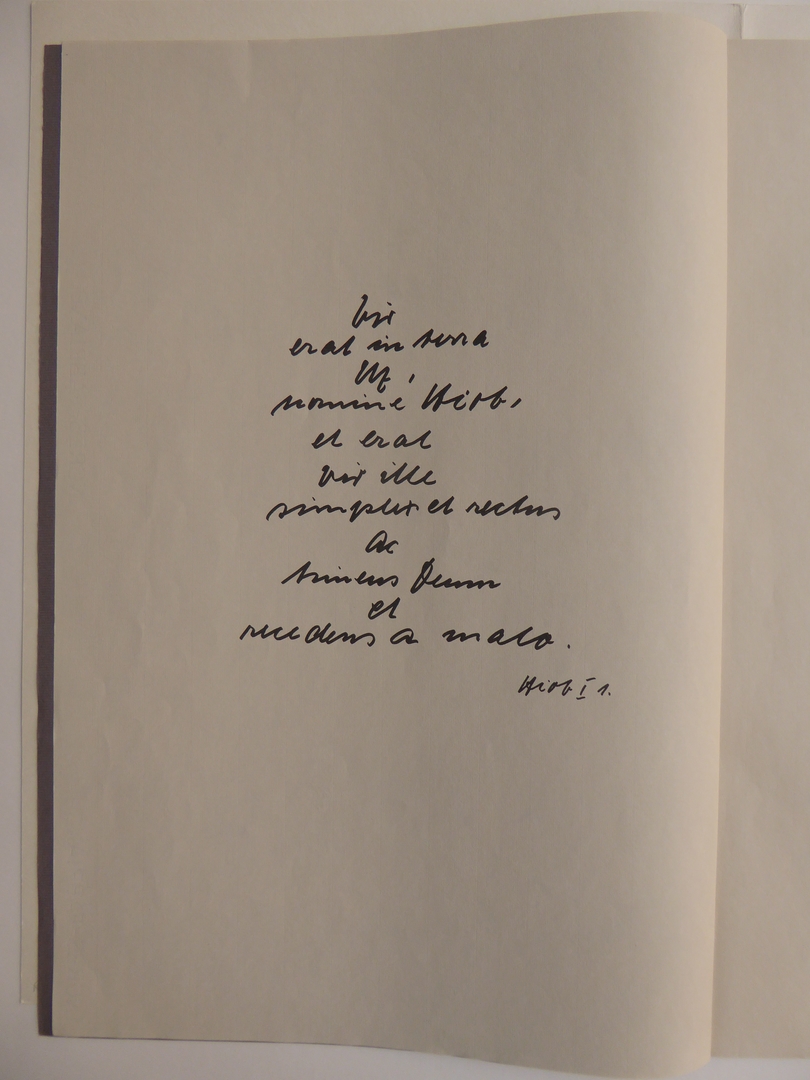 Vir
erat in terra
Uz,
nomine Hiob,
et erat
vir ille
simplex et rectus
ac
timens Deum
et
recedens a malo.
Hiob I 1.